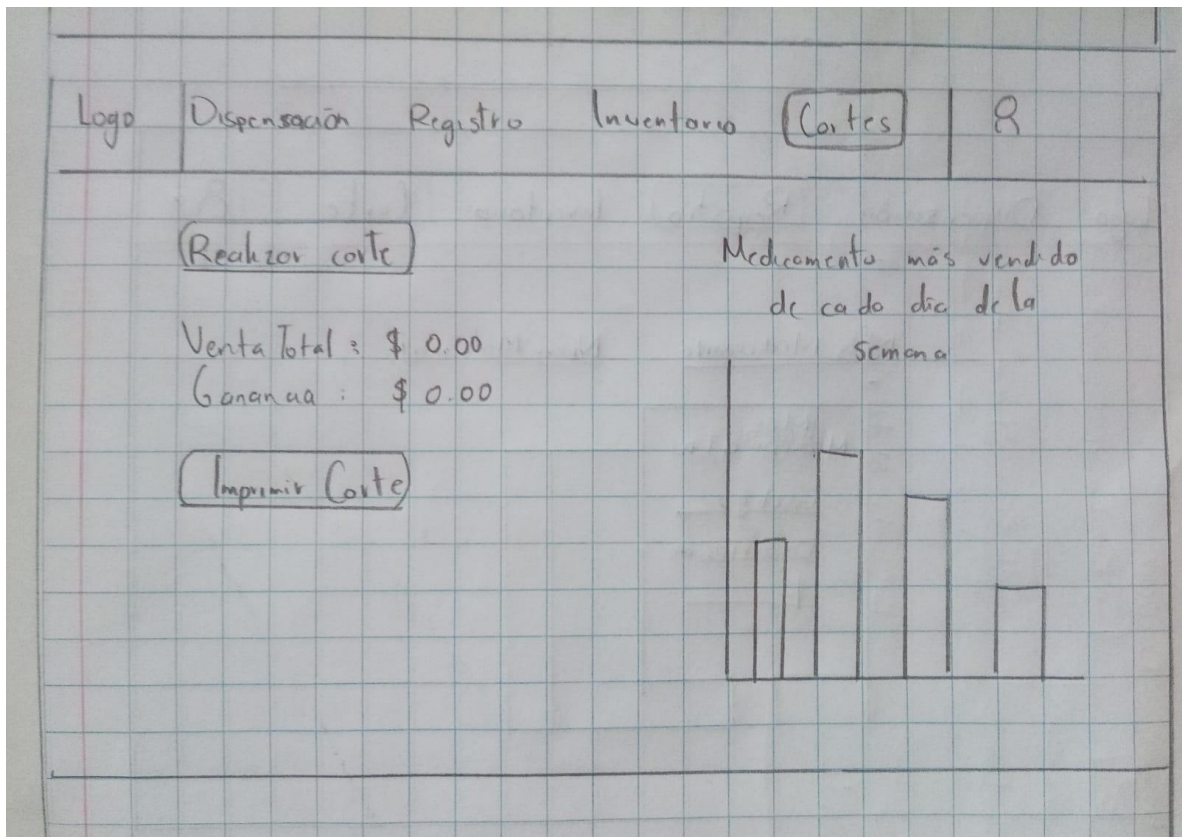 Logo Dispensación Registro Inventario Cortes
Realizar corte
Venta Total : $ 0.00
Ganancia : $ 0.00
Imprimir Corte
Medicamento más vendido
de cada día de la
semana